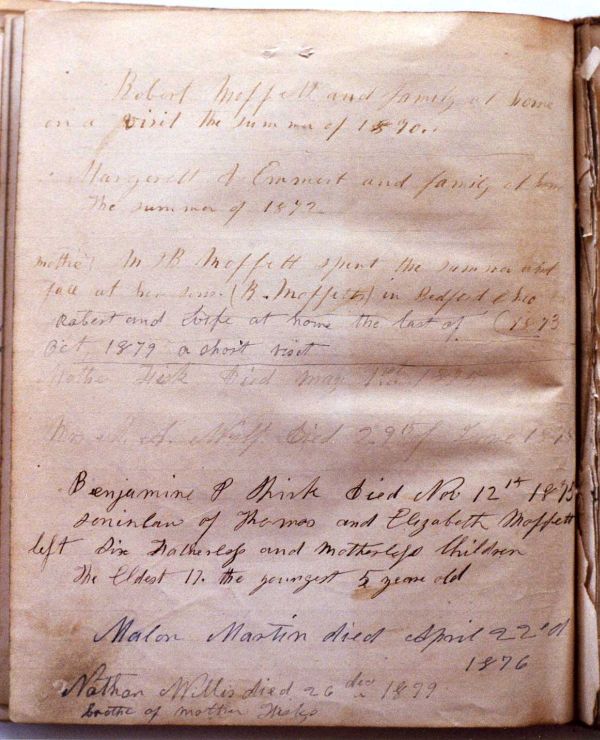 Robert Moffett and family at home
on a visit the summer of 1870.
Margerett J Emmert and family at hom
the summer of 1872
mother) M B Moffett spent the summer and
fall at her sons. (R. Moffetts) in Bedford Ohio
Robert and wife at home the last of (1873
Oct 1879 a short visit
Mothe Fisk Died may
Mrs A. Died 29th of June
Benjamine P Shirk Died Nov 12th 1875
soninlaw of Thomas and Elizabeth Moffett
left Six Fatherless and Motherless Children
The Eldest 17. the youngest 5 years old
Malon Martin died April 22nd
1876
Nathan Willis died 26 1879
brothe of mother Fisks